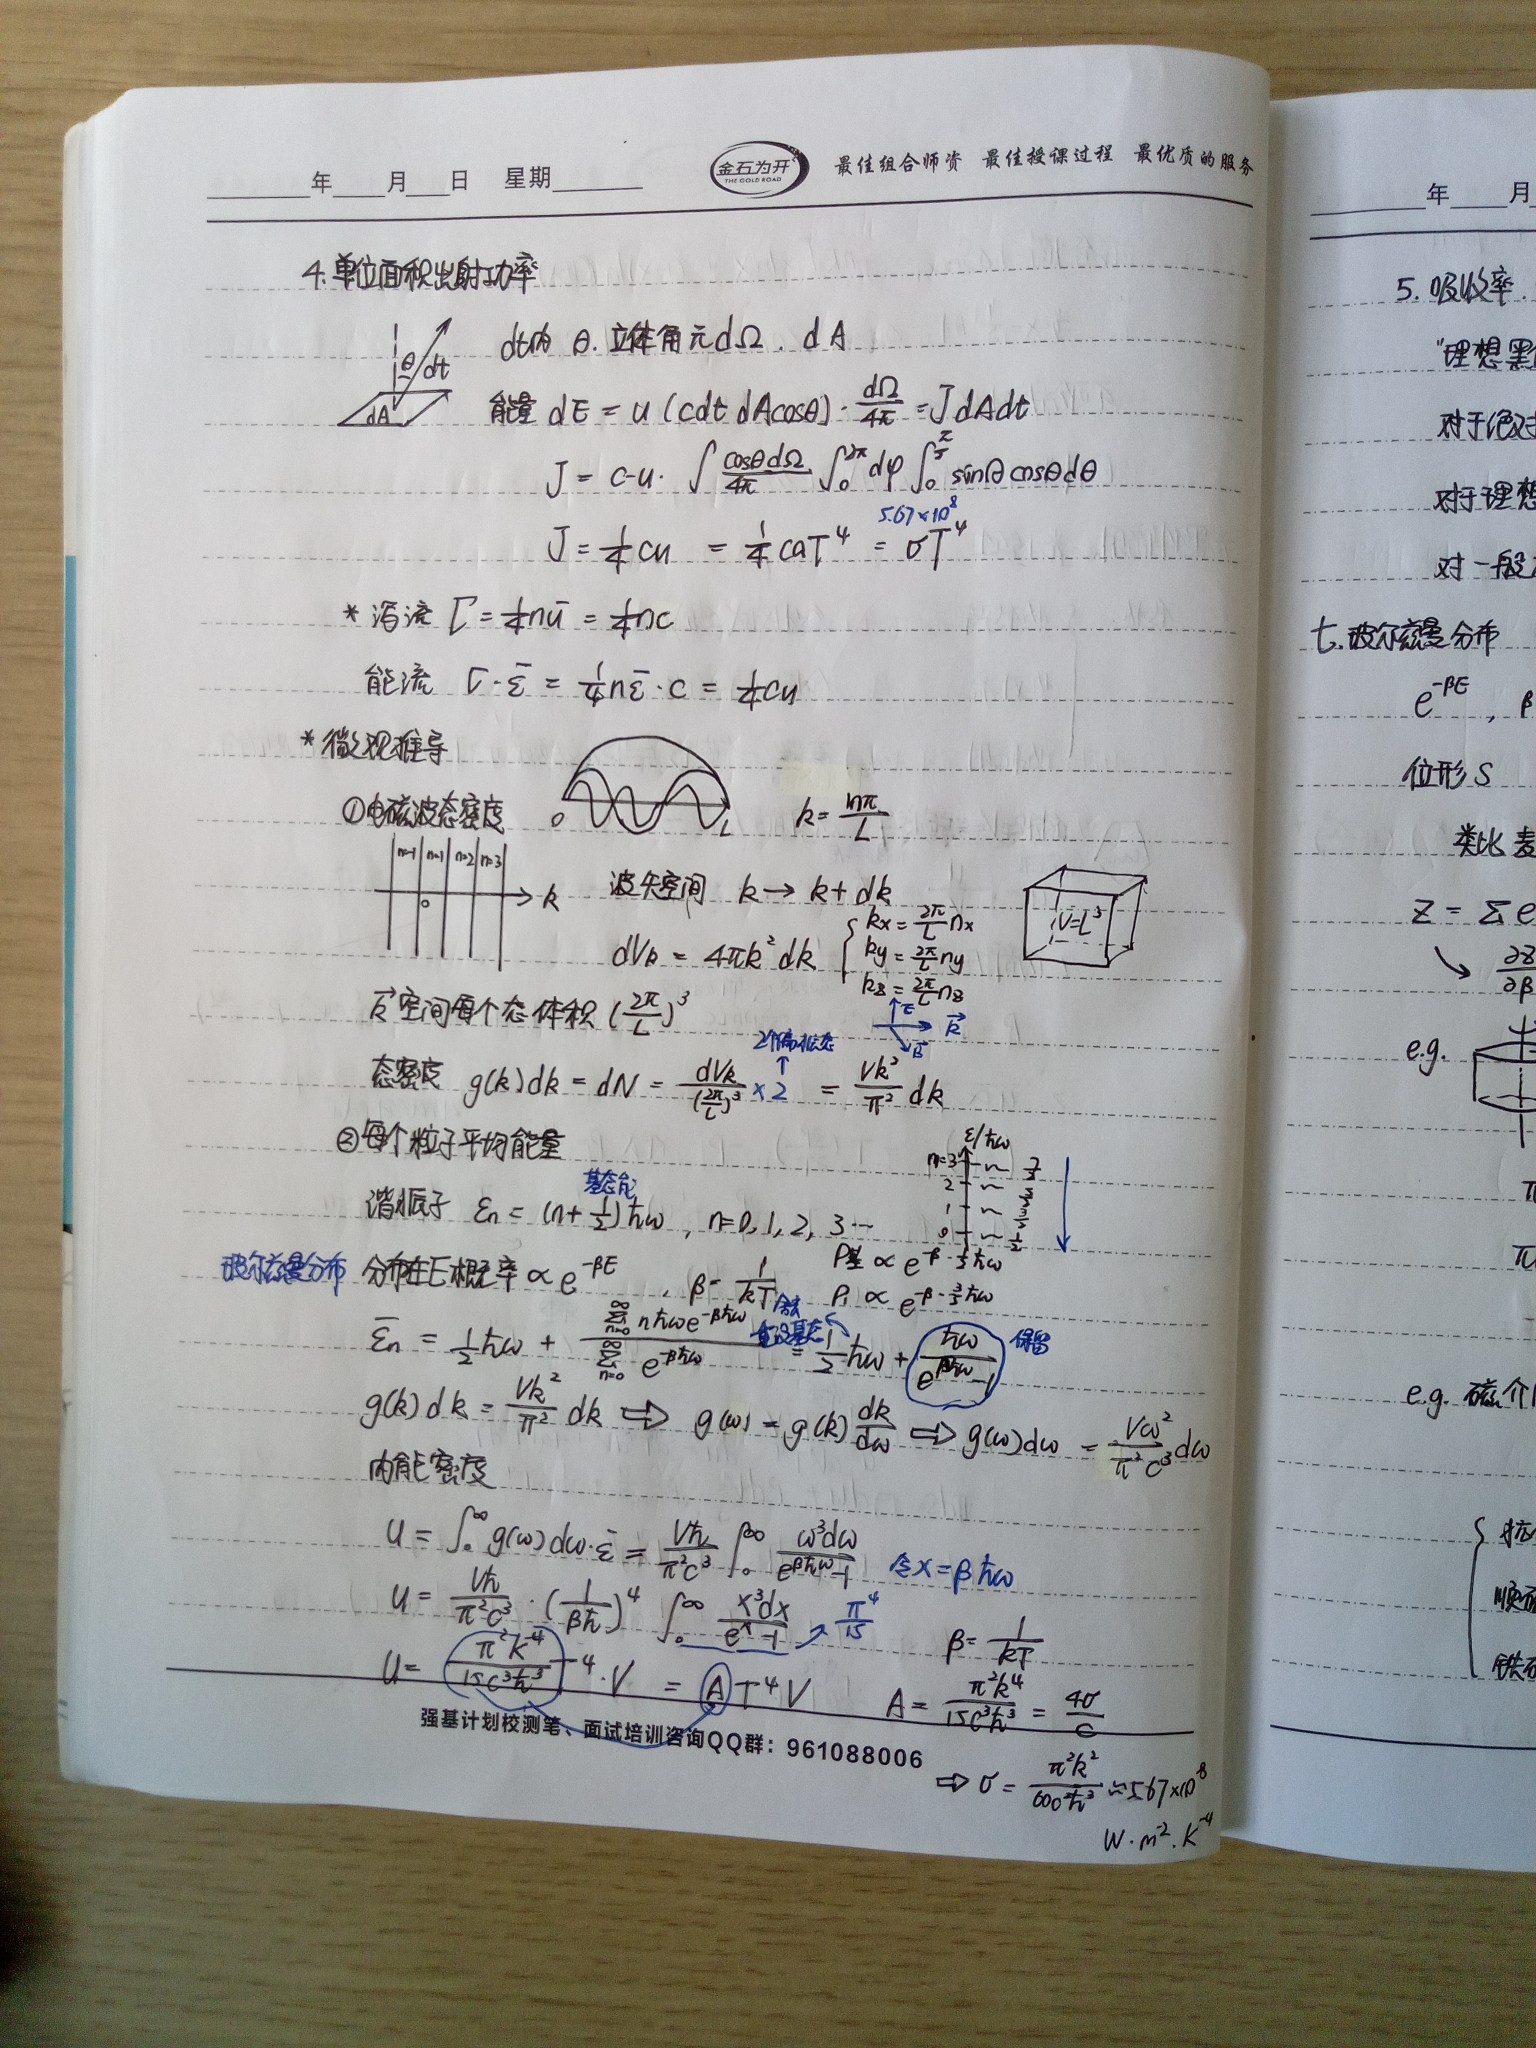 年 月 日 星期
金石为开
THE GOLD ROAD
最佳组合师资 最佳授课过程 最优质的服务
4.单位面积出射功率
θ dt
dA
dt内 θ.立体角元dΩ. dA
能量 dE = u (cdt dAcosθ)·dΩ/4π = J dAdt
J = c·u· ∫ cosθdΩ/4π ∫₀^2π dφ ∫₀^π/2 sinθcosθdθ
5.67×10^8
J = 1/4 cu = 1/4 caT⁴ = σT⁴
* 泻流 Γ = 1/4nū = 1/4nc
能流 Γ·ε̄ = 1/4nε̄·c = 1/4cu
* 微观推导
①电磁波态密度
0 L
k = nπ/L
n=-1 n=1 n=2 n=3
0 k
波矢空间 k → k+dk
V=L³
dVk = 4πk²dk
kx = 2π/L nx
ky = 2π/L ny
kz = 2π/L nz
k⃗空间每个态体积 (2π/L)³
E k⃗ B⃗
2个偏振态
态密度 g(k)dk = dN = dVk/(2π/L)³ ×2 = Vk²/π² dk
②每个粒子平均能量
ε/ħω
n=3 7/2
2 5/2
1 3/2
0 1/2
基态能
谐振子 εn = (n+1/2)ħω , n=0,1,2,3…
玻尔兹曼分布 分布在E概率 ∝ e^-βE , β = 1/kT
P基 ∝ e^-β·1/2ħω
P₁ ∝ e^-β·3/2ħω
ε̄n = 1/2ħω + Σn=0^∞ nħωe^-βħω / Σn=0^∞ e^-βħω = 1/2ħω + ħω/(e^βħω-1) 保留
g(k)dk = Vk²/π² dk ⇒ g(ω) = g(k)dk/dω ⇒ g(ω)dω = Vω²/π²c³ dω
内能密度
U = ∫₀^∞ g(ω)dω·ε̄ = Vħ/π²c³ ∫₀^∞ ω³dω/(e^βħω-1) 令x=βħω
U = Vħ/π²c³ · (1/βħ)⁴ ∫₀^∞ x³dx/(e^x-1) π⁴/15
β = 1/kT
U = π²k⁴/15c³ħ³ T⁴·V = A T⁴V A = π²k⁴/15c³ħ³ = 4σ/c
强基计划校测笔、面试培训咨询QQ群：961088006
⇒ σ = π²k²/60c²ħ³ ≈ 5.67×10^-8
W·m^-2·K^-4
年 月
5.吸收率.
"理想黑
对于绝对
对于理想
对一般
七.玻尔兹曼分布
e^-βE , β
位形 S
类比 麦
Z = Σ e
∂Z/∂β
e.g.
e.g. 磁介
抗
顺磁
铁磁